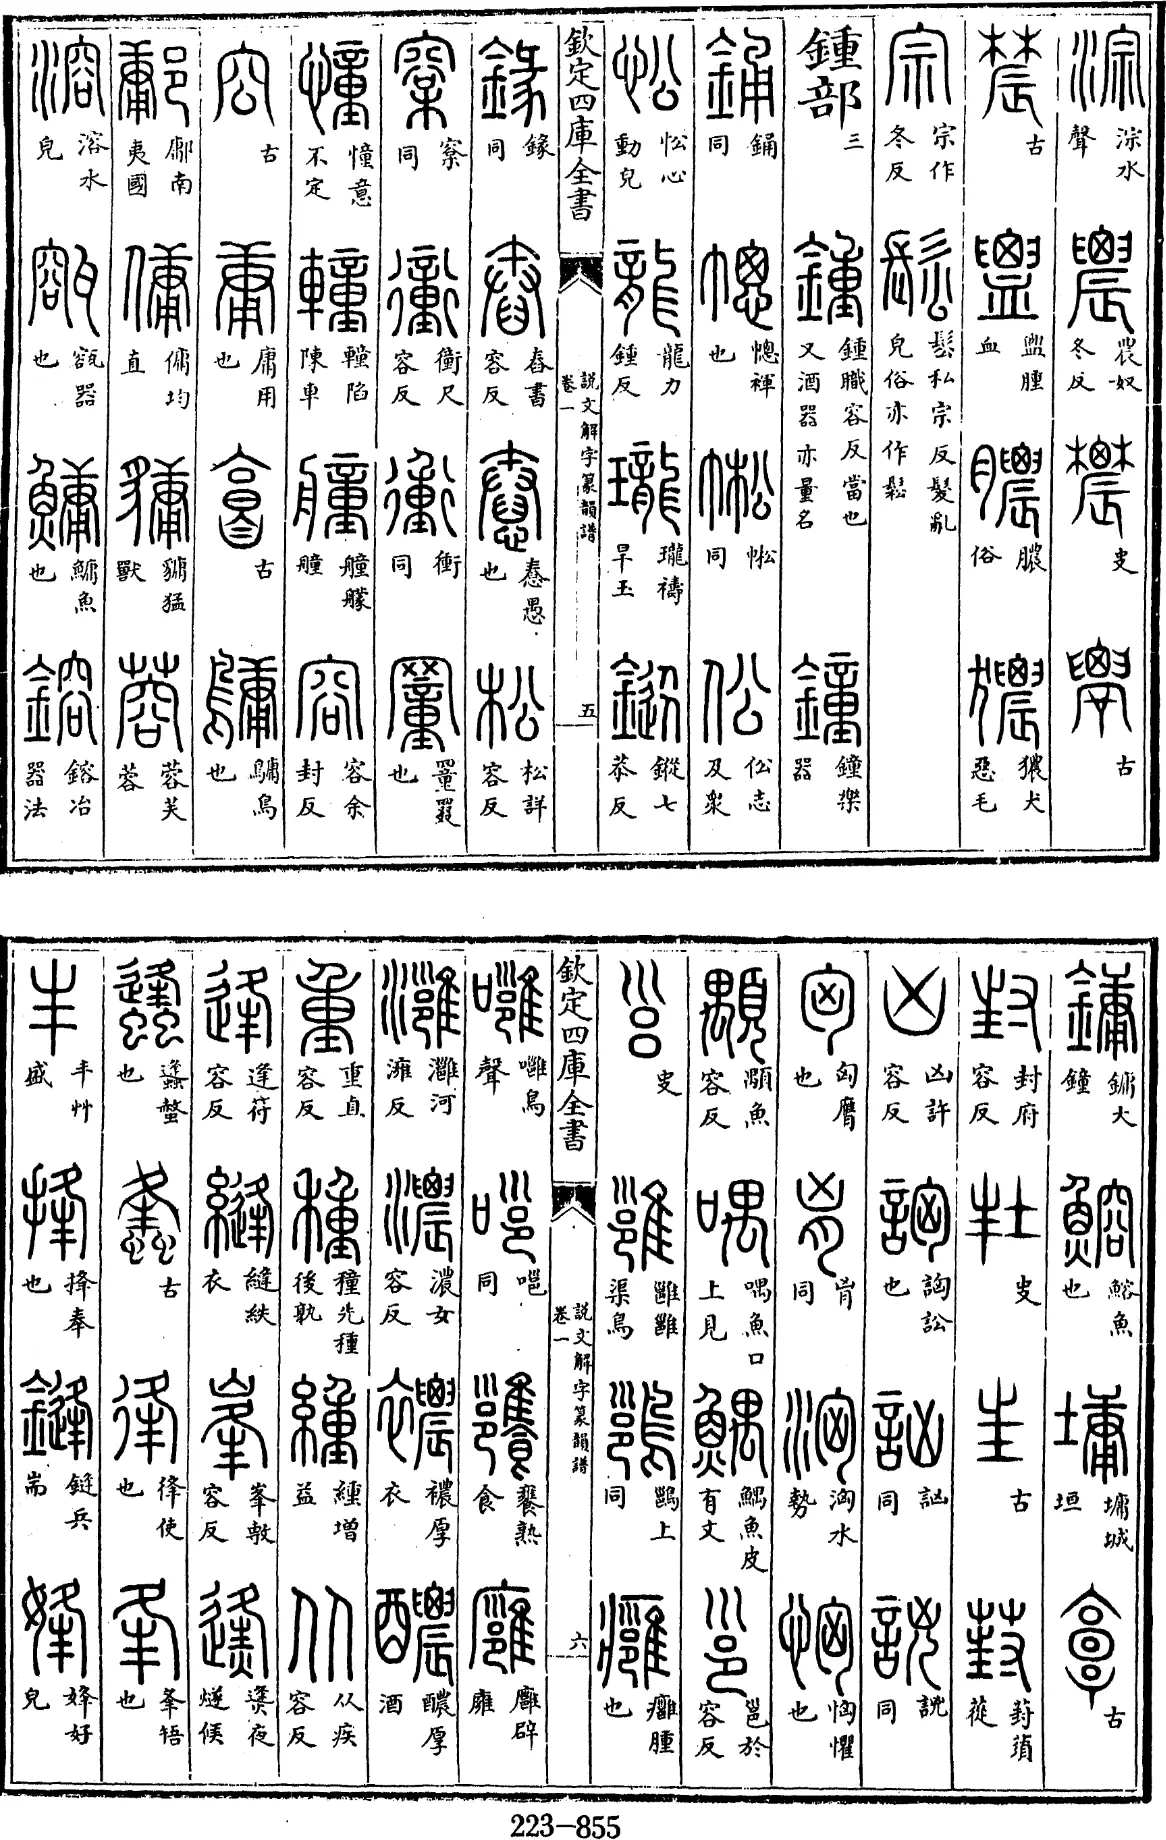 淙 淙水聲 農 農奴冬反 史 古
古 腫血 膿 膿俗 犬惡毛
宗 宗作冬反 鬆 鬆私宗反髮亂皃俗亦作鬆
鍾部三 鍾 鍾職容反當也又酒器亦量名 鐘 鐘樂器
銿 銿同 幒 幒褌也 㡆 㡆同 伀 伀志及衆
忪 忪心動皃 龍 龍力鍾反 瓏 瓏禱旱玉 鏦 鏦七恭反
欽定四庫全書 說文解字篆韻譜 卷一 五
同 舂 舂書容反 憃 憃愚也 松 松詳容反
同 衝 衝尺容反 衝 衝同 罿 罿罬也
憧 憧意不定 䡴 䡴陷陳車 艟 艟艨艟 容 容余封反
古 庸 庸用也 古 鷛 鷛鳥也
鄘 鄘南夷國 傭 傭均直 猛獸 蓉 蓉芙蓉
溶 溶水皃 器也 鱅 鱅魚也 鎔 鎔冶器法
鏞 鏞大鐘 鰫 鰫魚也 墉 墉城垣 古
封 封府容反 史 古 葑 葑
凶 凶許容反 詾 詾訟也 訩 訩同 同
匈 匈膺也 同 洶 洶水勢 恟 恟懼也
顒 顒魚容反 喁 喁魚口上見 鰅 鰅魚皮有文 邕 邕於容反
史 雝 雝雝渠鳥 上同 癰 癰腫也
欽定四庫全書 說文解字篆韻譜 卷一 六
噰 噰鳥聲 嗈 嗈同 饔 饔熟食 廱 廱辟廱
灉 灉河灉反 濃 濃女容反 襛 襛厚衣 醲 醲厚酒
重 重直容反 穜 穜先種後孰 緟 緟增益 从 从疾容反
逢 逢符容反 縫 縫紩衣 峯 峯敷容反 夜燧候
蠭 蠭螫也 古 㣔 㣔使也 夆 夆牾也
丰 丰艸盛 捀 捀奉也 鏠 鏠兵耑 好皃
223-855